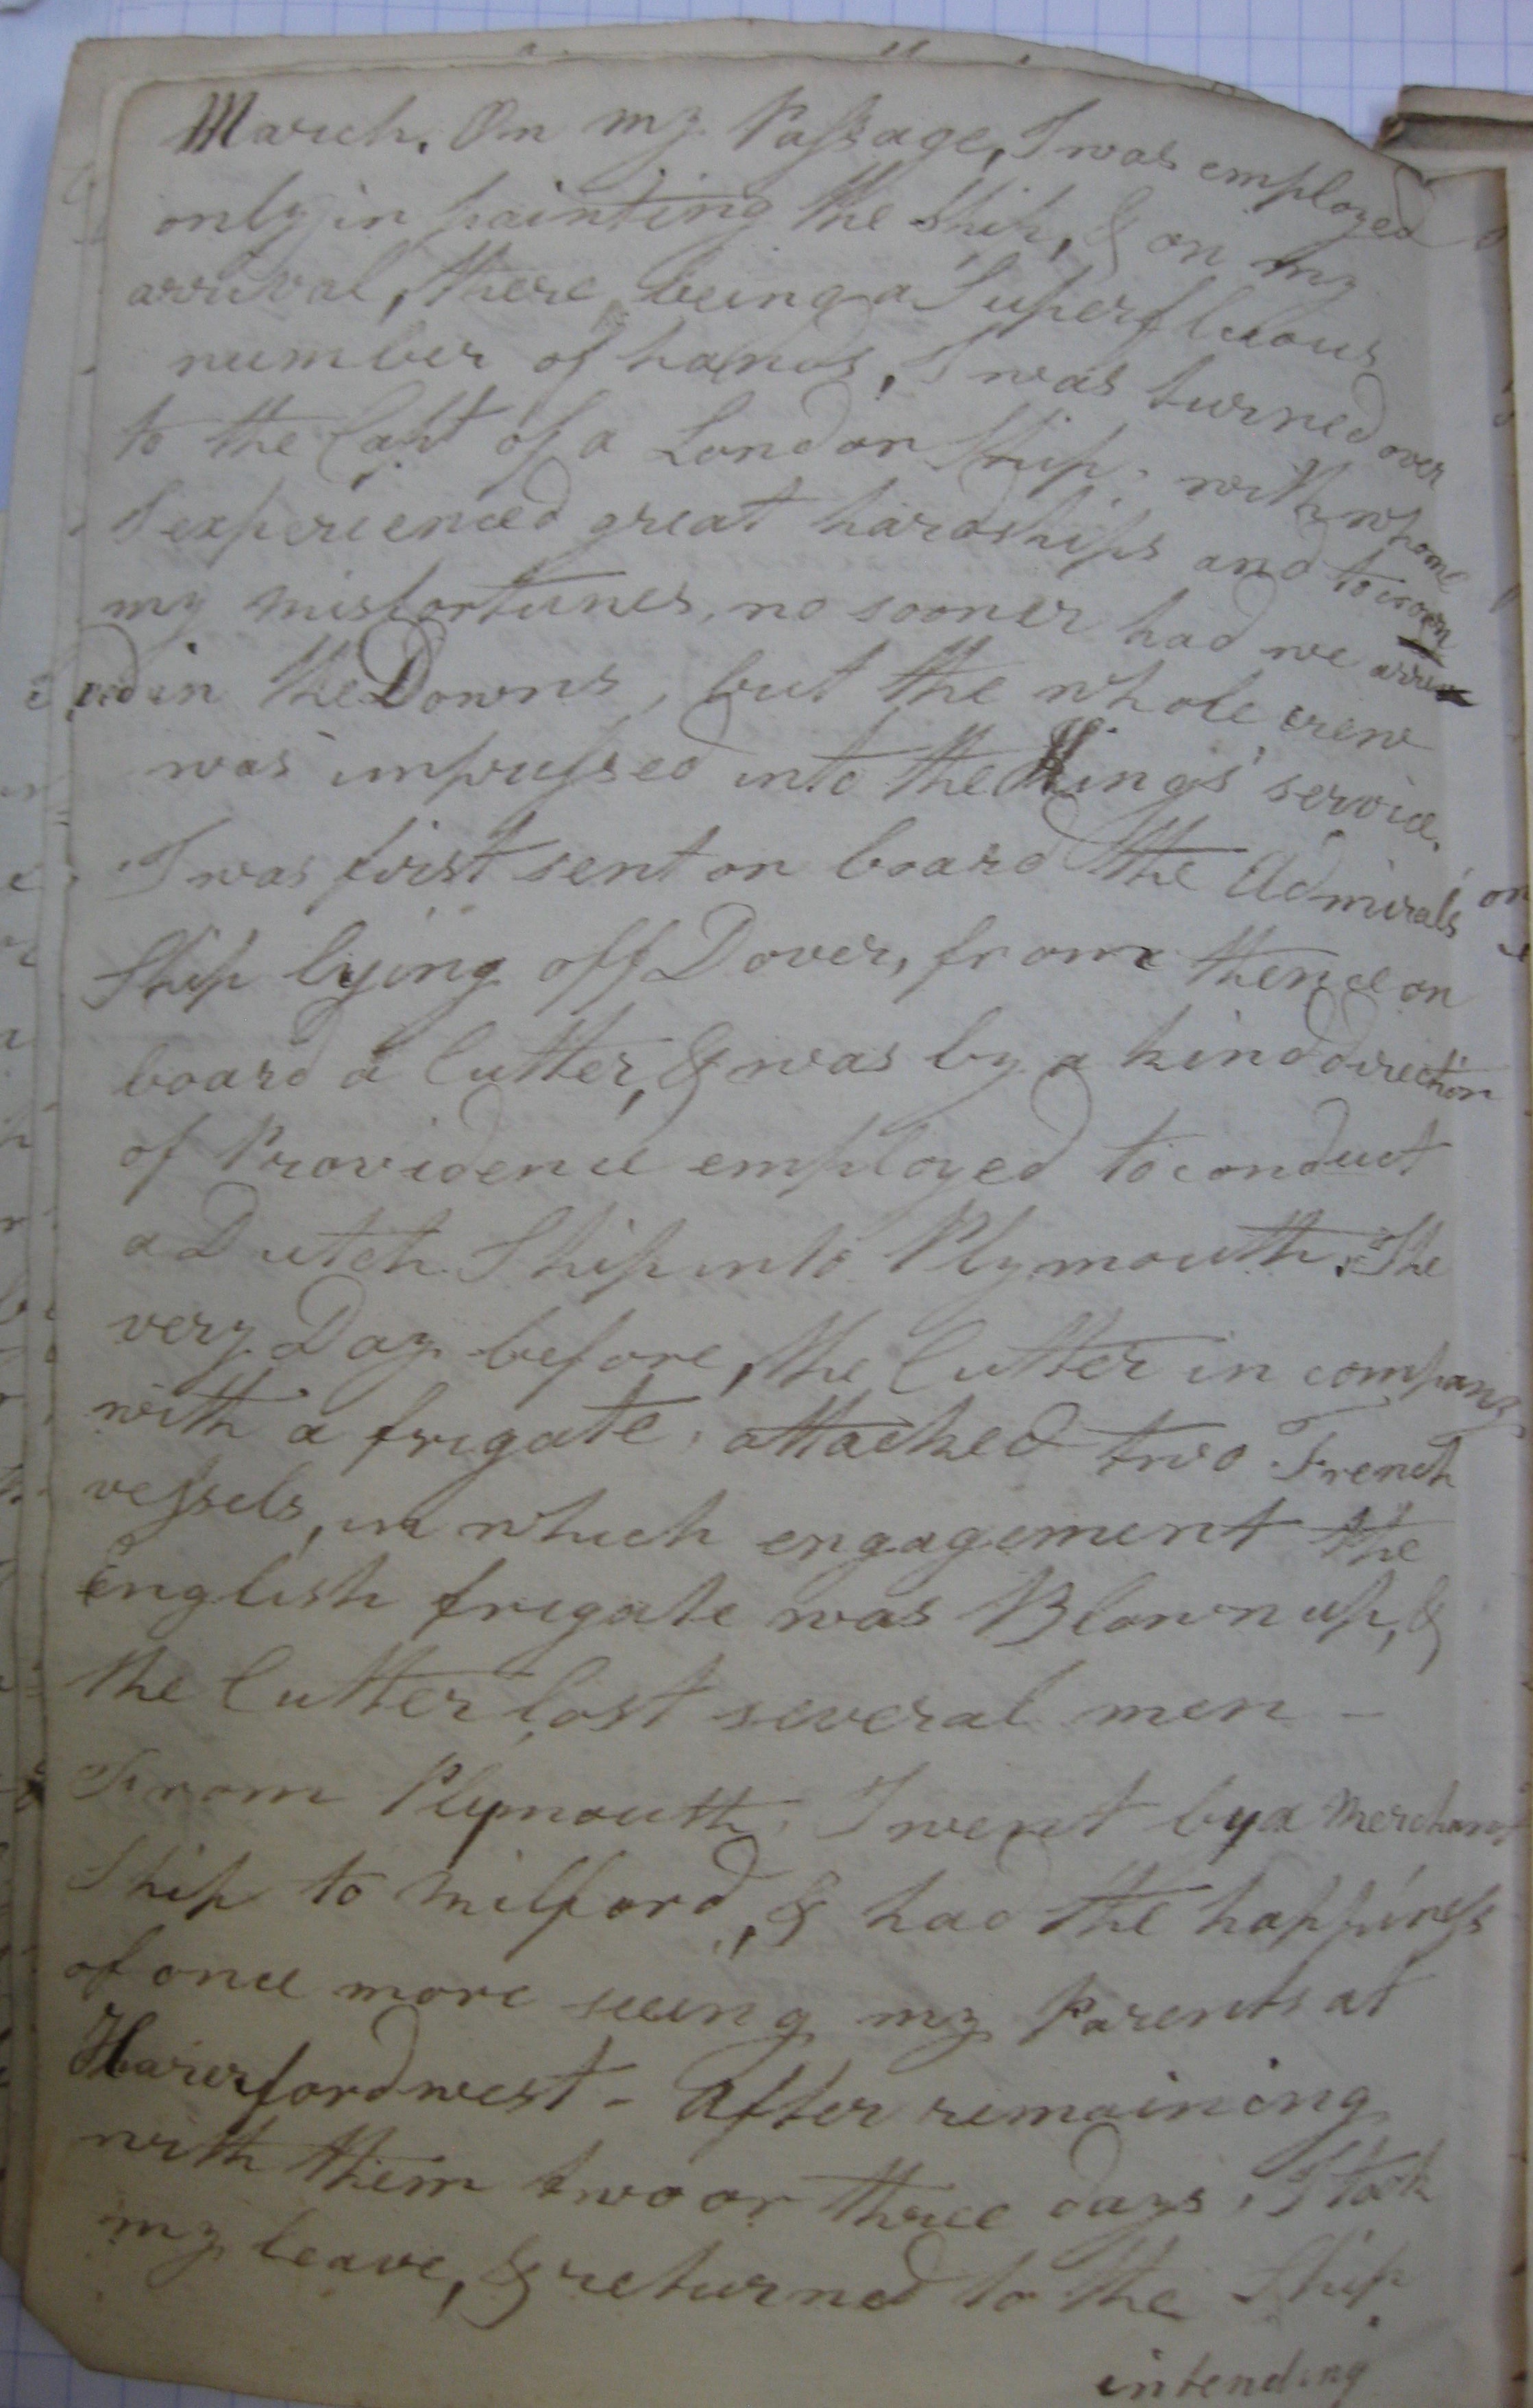 March. On my Passage, I was employed
only in painting the Ship, & on my
arrival, there being a Superfluous
number of hands, I was turned over
to the Capt of a London Ship. with whome
I experienced great hardships and to crown
my misfortunes, no sooner had we arri
ved in the Downs, but the whole crew
was impressed into the Kings' service.
I was first sent on board the Admirals'
Ship lying off Dover, from thence on
board a Cutter, & was by a kind direction
of Providence employed to conduct
a Dutch Ship into Plymouth. The
very Day before, the Cutter in company
with a frigate, attacked two French
vessels, in which engagement the
English frigate was Blown up, &
the Cutter lost several men -
From Plymouth, I went by a Merchant
Ship to Milford, & had the happiness
of once more seeing my Parents at
Haverfordwest - After remaining
with them two or three days, I took
my leave, & returned to the Ship.
intending